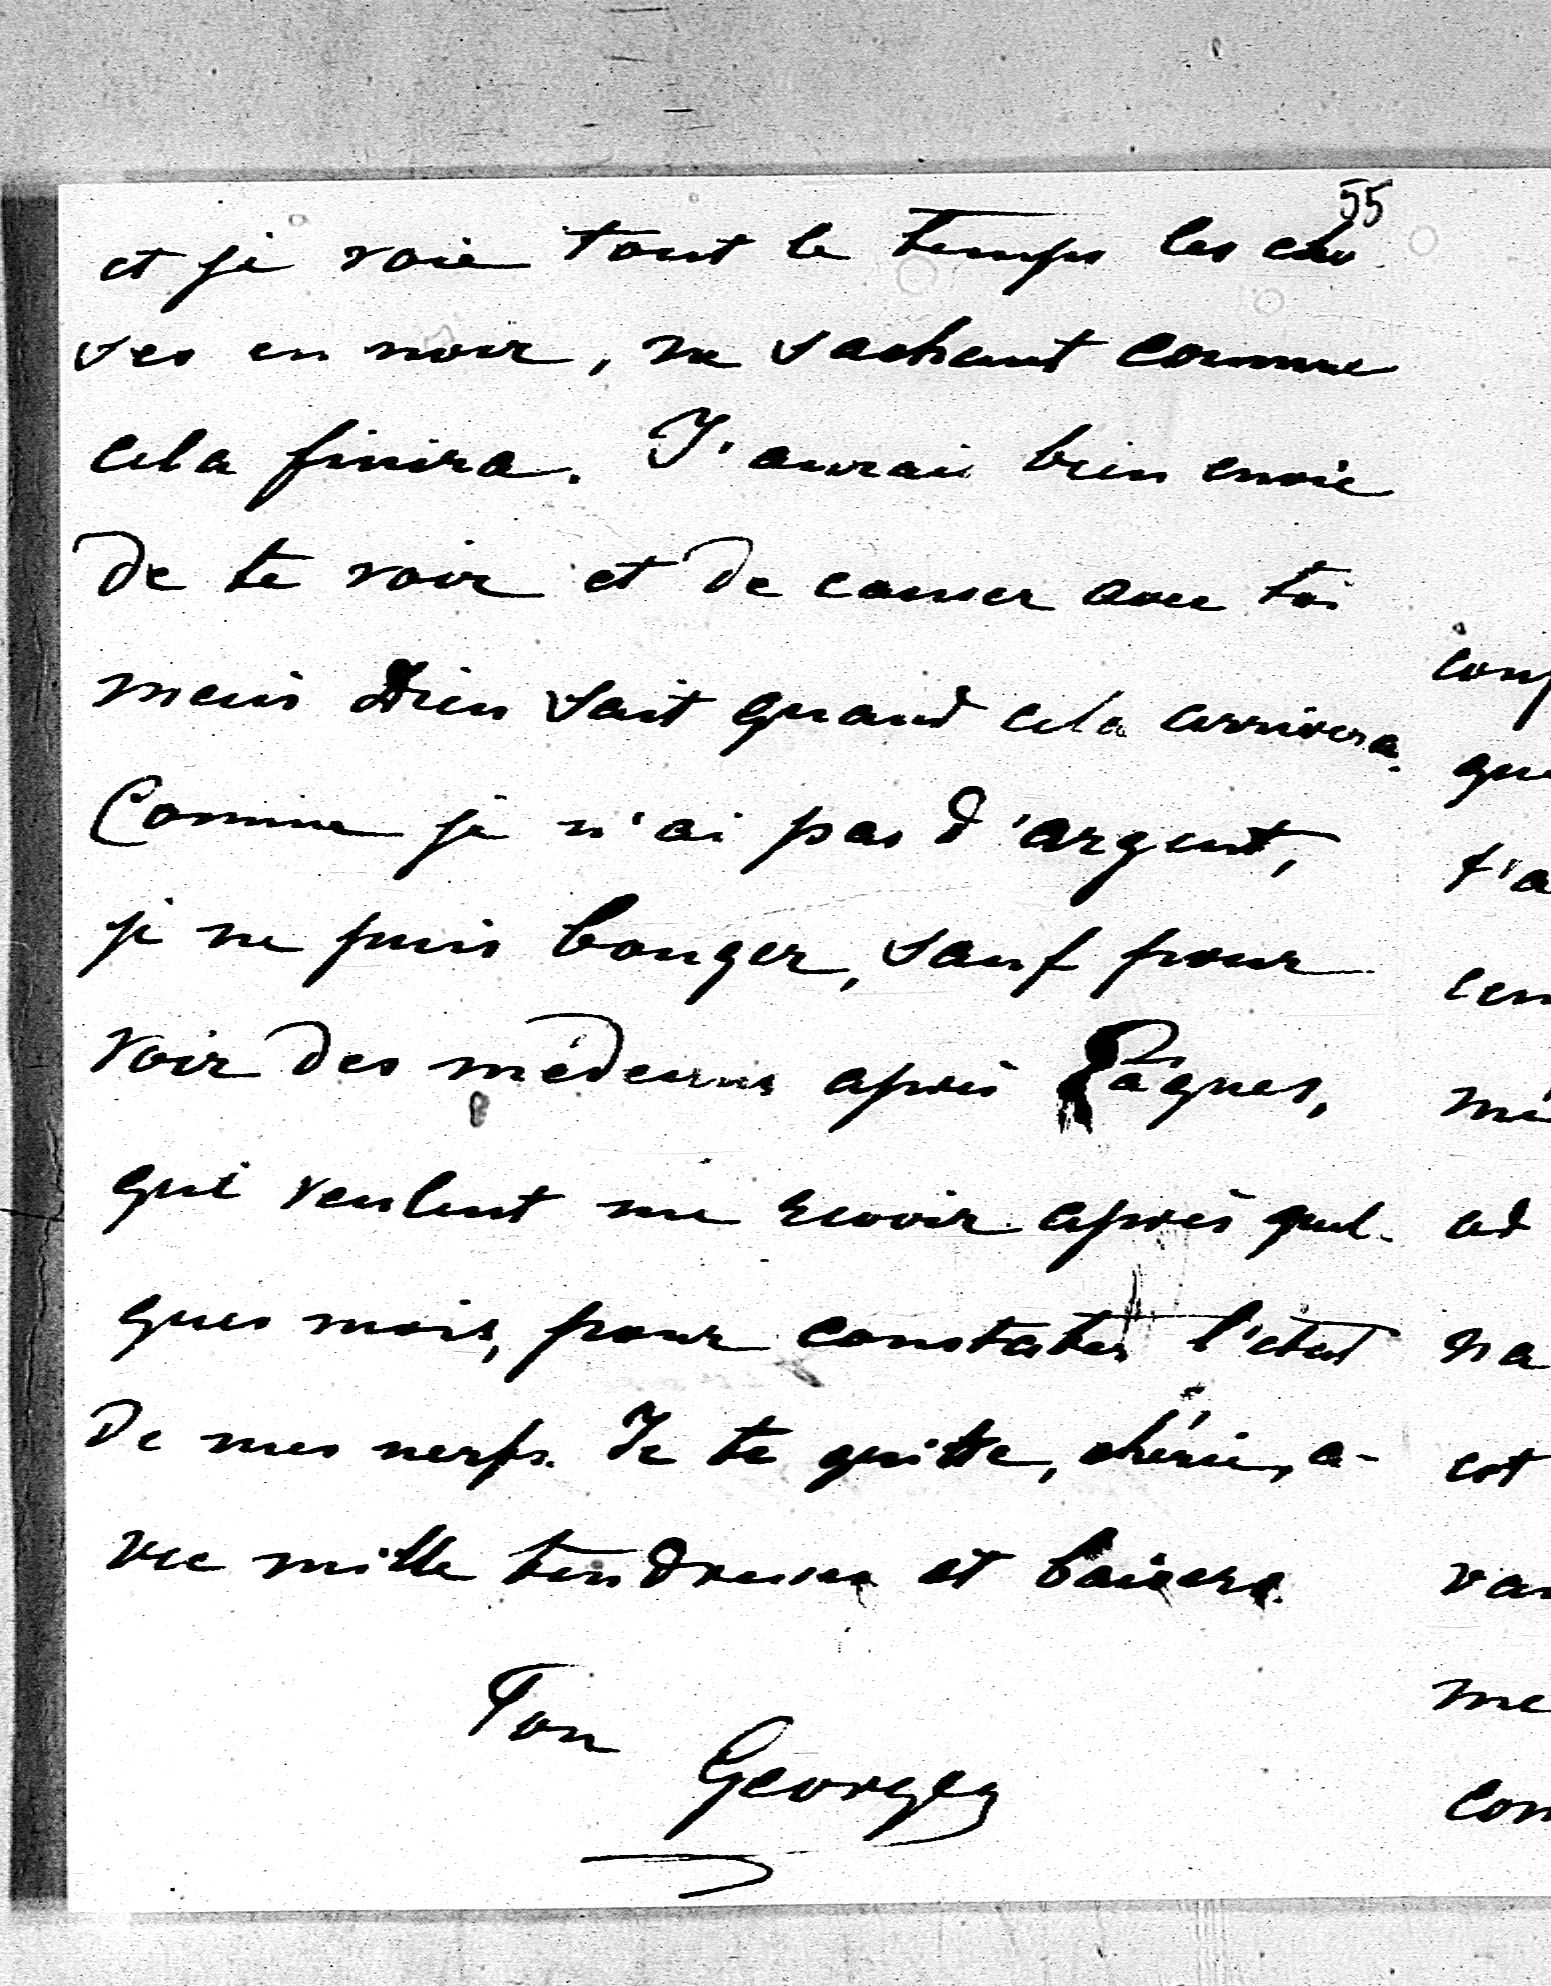 55
et je voie tout le temps les cho
ses en noir, ne sachant comme
cela finira. J'aurai bien envie
de te voir et de causer avec toi
mais Dieu sait quand cela arrivera.
Comme je n'ai pas d'argent,
je ne puis bouger, sauf pour
voir des médecins après Pâques,
qui veulent me revoir après quel-
ques mois, pour constater l'état
de mes nerfs. Je te quitte, chérie, a-
vec mille tendresses et baisers.
Ton
Georges
que
t'a
cen
mé
ad
na
cot
van
me
com